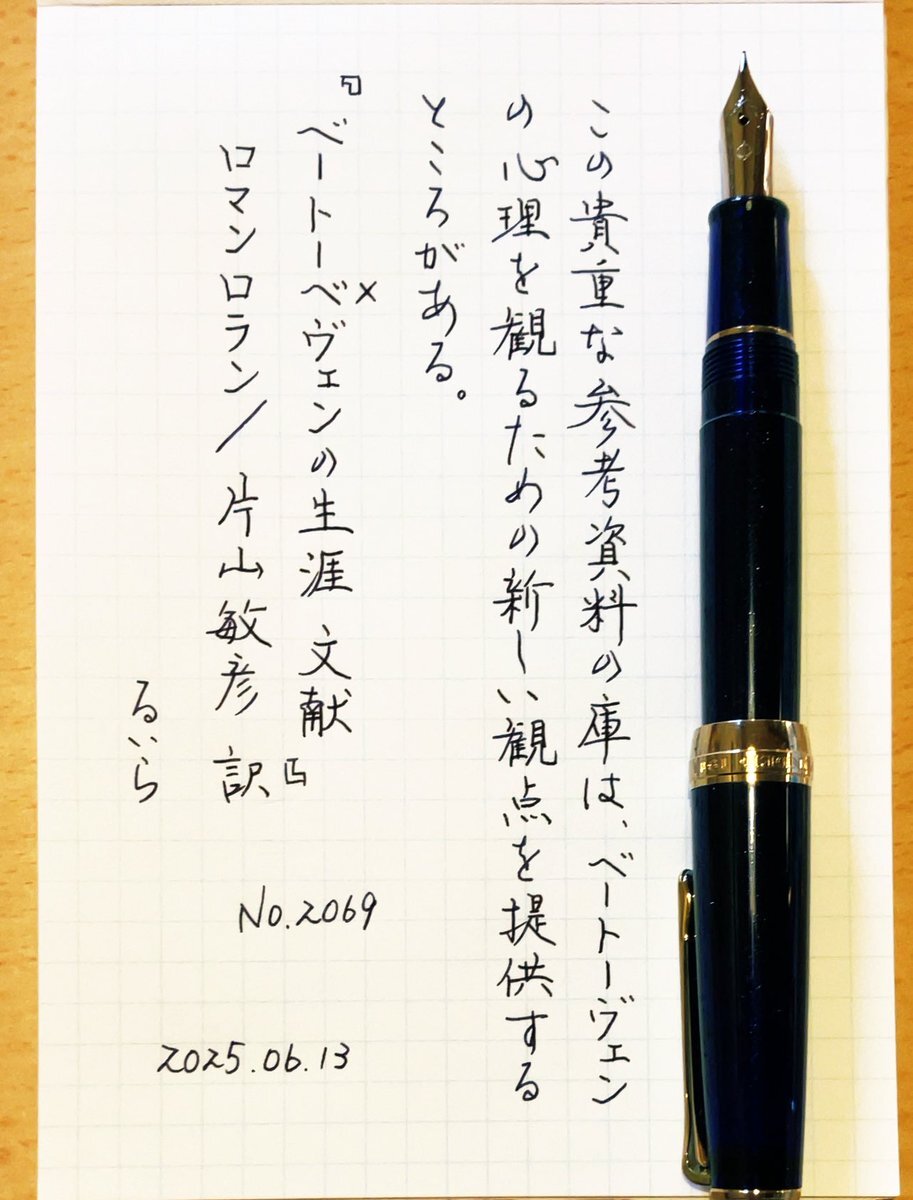 この貴重な参考資料の庫は、ベートーヴェン
の心理を観るための新しい観点を提供する
ところがある。
『ベートーベヴェンの生涯 文献』
×
ロマンロラン/片山敏彦 訳
るいら
No.2069
2025.06.13